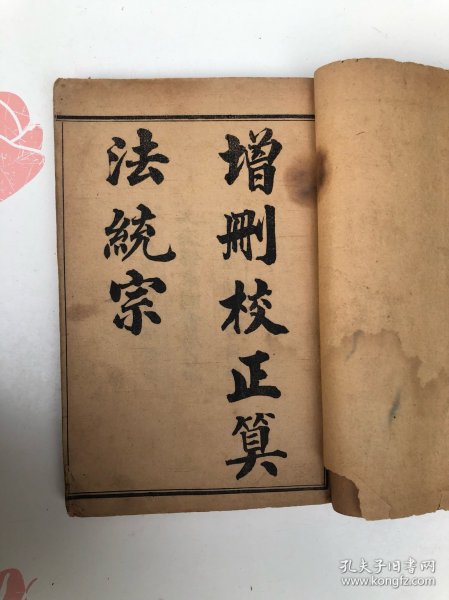 增刪校正算
法統宗
孔夫子旧书网
www.kongfz.com